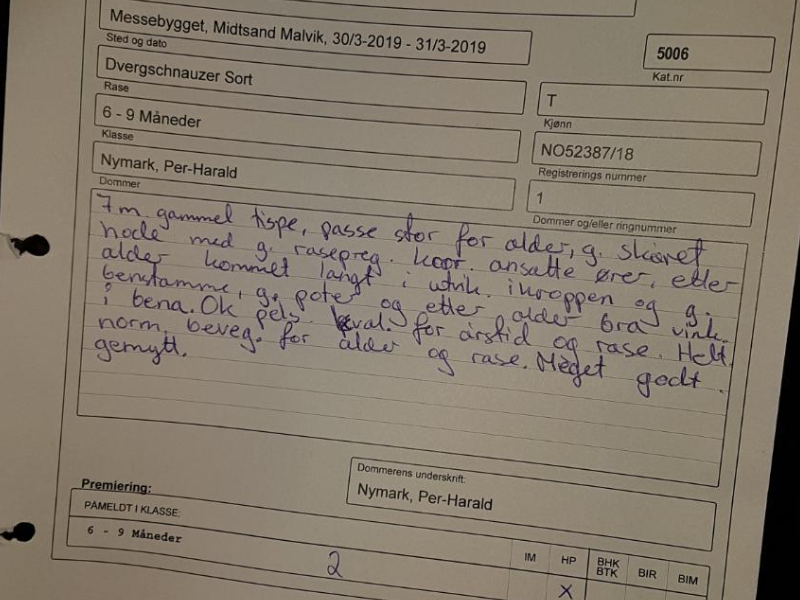 Messebygget, Midtsand Malvik, 30/3-2019 - 31/3-2019
Sted og dato
5006
Kat.nr
Dvergschnauzer Sort
Rase
T
Kjønn
6 - 9 Måneder
Klasse
NO52387/18
Registrerings nummer
Nymark, Per-Harald
Dommer
1
Dommer og/eller ringnummer
7 m. gammel tispe, passe stor for alder, g. skåret
hode med g. rasepreg. korr. ansatte ører, etter
alder kommet langt i utvik. i kroppen og g.
benstamme, g. poter og etter alder bra vink.
i bena. Ok pels kval. for årstid og rase. Helt
norm. beveg. for alder og rase. Meget godt
gemytt.
Dommerens underskrift:
Nymark, Per-Harald
Premiering:
PÅMELDT I KLASSE:
6 - 9 Måneder
2
IM HP BHK BTK BIR BIM
X